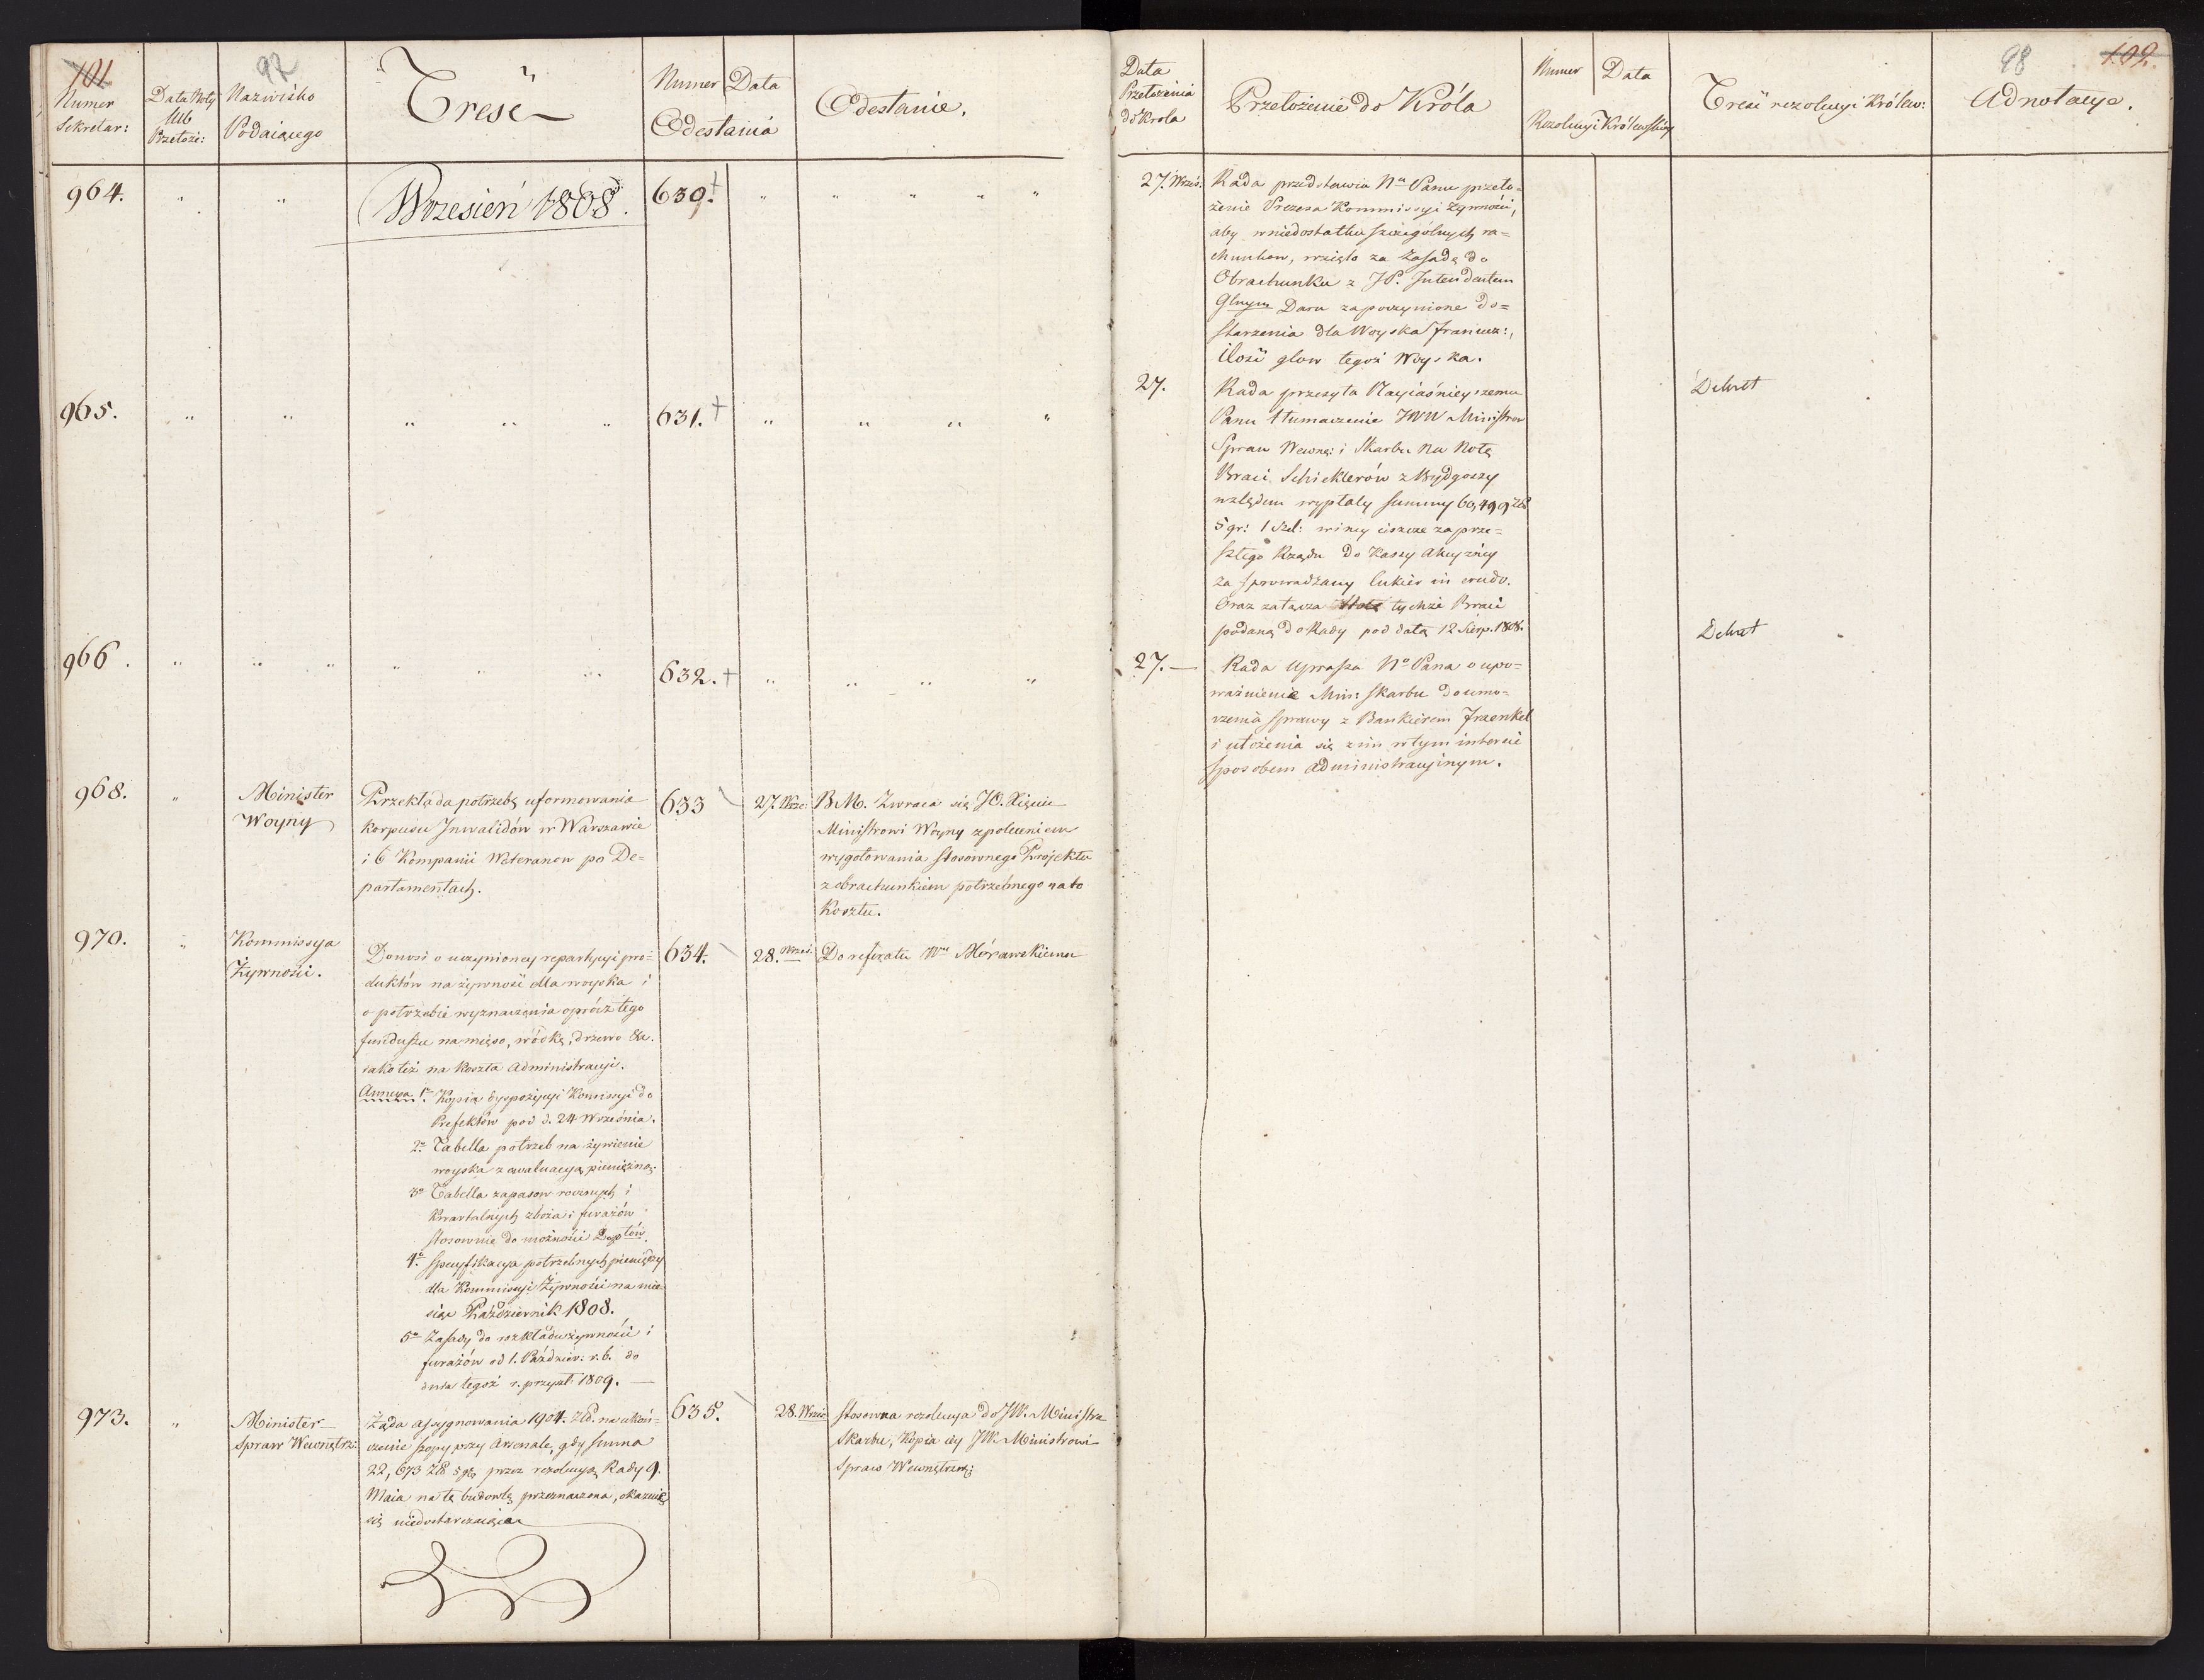 101
97
Numer
Sekretar:
Data Noty
lub
Przełoże:
Nazwisko
Podaiącego
Treść
Numer
Data
Odesłania
Odesłanie.
964.
Wrzesień 1808.
630.
965.
631.
966.
632.
968.
Minister
Woyny
Przekłada potrzebę uformowania
korpusu Inwalidów w Warszawie
i 6 Kompanii Weteranow po De=
partamentach.
633
27. Wrze:
B.M. Zwraca się JO. Xięciu
Ministrowi Woyny z poleceniem
wygotowania stosownego Projektu
z obrachunkiem potrzebnego na to
Kosztu.
970.
Kommissya
Żywności.
Donosi o uczynioney repartycyi pro=
duktów na żywność dla woyska i
o potrzebie wyznaczenia oprócz tego
funduszu na mięso, wódkę, drzewo &a.
iako też na koszta administracyi.
Annexa 1o Kopia dyspozycyi Komissyi do
Prefektów pod d. 24 Września.
2o Tabella potrzeb na żywienie
woyska z ewaluacyą pieniężną.
3o Tabella zapasow rocznych i
kwartalnych zboża i furażów
stosownie do możności Deptów.
4o Specyfikacya potrzebnych pieniędzy
dla Kommissyi Żywności na mie=
siąc Październik 1808.
5o Zasady do rozkładu żywności i
furażów od 1. Paździer: r. b. do
dnia tegoż r. przyszł. 1809.
634.
28. Wrześ.
Do referatu Wu Morawskiemu
973.
Minister
Spraw Wewnętrz:
Żąda assygnowania 1904. Zł. na ukoń=
czenie szopy przy Arsenale, gdy summa
22,673 Zł 5 gr przez rezolucyą Rady 9.
Maia na tę budowlę przeznaczona, okazuie
się niedostarczaiąca
635.
28. Wrześ
Stosowna rezolucya do JW. Ministra
Skarbu, Kopia iey JW. Ministrowi
Spraw Wewnętrzn:
98
102.
Data
Przełożenia
do Krola
Przełożenie do Króla
Numer
Data
Rezolucyi Królewskiey
Treść rezolucyi Królew:
Adnotacye.
27. Wrześ.
Rada przedstawia Nu Panu przeło=
żenie Prezesa Kommissyi Żywności,
aby w niedostatku szczególnych ra=
chunkow, wzięło za Zasadę do
Obrachunku z JP. Intendentem
Glnym Daru za poczynione do=
starzenia dla Woyska francuz:,
ilość głow tegoż Woyska.
27.
Rada przesyła Nayiaśnieyszemu
Panu tłumaczenie JWW Ministrow
Spraw Wewnę: i Skarbu na Notę
Braci Schicklerów z Bydgoszy
względem wypłaty summy 60,499 Zł
5 gr: 1 szel: winney ieszcze za prze=
szłego Rządu do Kassy Akcyzney
za sprowadzany Cukier in crudo.
Oraz załącza Notę tychże Braci
podaną do Rady pod datą 12 Sierp. 1808.
Dekret
27.
Rada uprasza No Pana o upo=
ważnienie Min: Skarbu do umo=
rzenia sprawy z Bankierem Fraenkel
i ułożenia się z nim w tym interesie
sposobem administracyinym.
Dekret